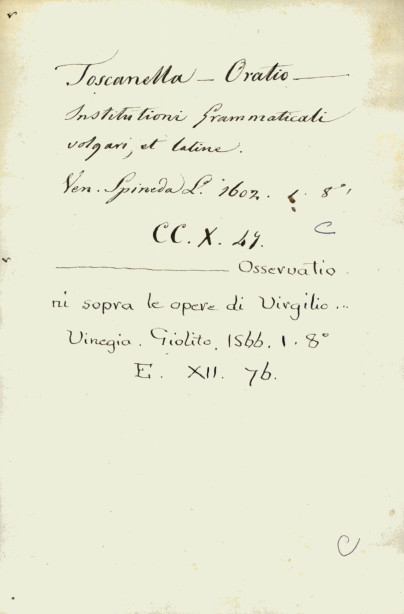 Toscanella — Oratio —
Institutioni Grammaticali
volgari, et latine.
Ven. Spineda L. 1602. 1. 8°
CC. X. 47.
C
——— Osservatio
ni sopra le opere di Virgilio...
Vinegia. Giolito. 1566. 1. 8°
E. XII. 76.
C